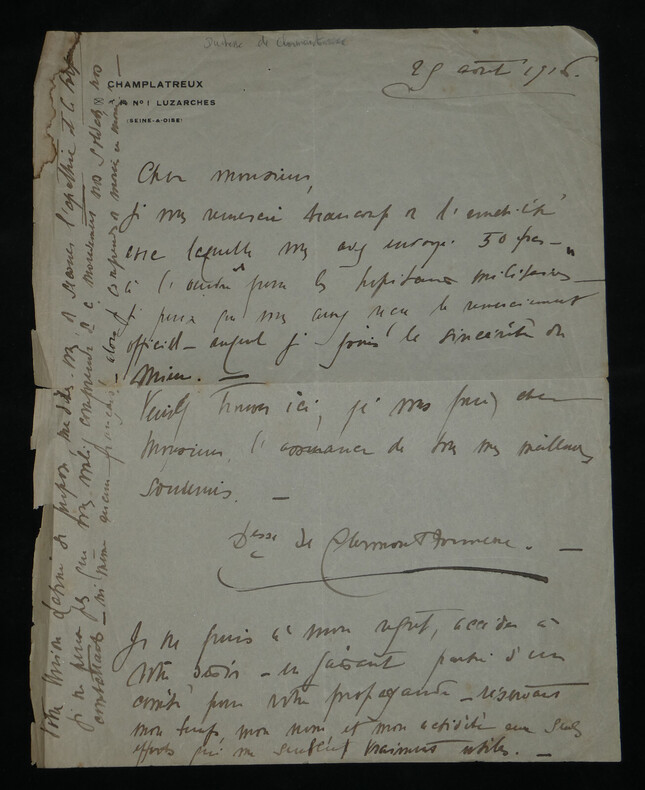 Duchesse de Clermont-Tonnerre
29 août 1916.
CHAMPLATREUX
Nº 1 LUZARCHES
(SEINE-&-OISE)
Cher monsieur,
Je vous remercie beaucoup de l'amabilité
avec laquelle vous avez envoyé 50 frs
à l'oeuvre pour les hopitaux militaires
je pense que vous avez reçu le remerciement
officiel – auquel je joins la sincérité du
mien. —
Veuillez trouver ici, je vous prie, cher
Monsieur, l'assurance de tous mes meilleurs
souvenirs. —
Dsse de Clermont Tonnerre. —
Je ne puis à mon regret, accéder à
votre désir – en faisant partie d'un
comité pour votre propagande – réservant
mon temps, mon nom et mon activité aux seuls
efforts qui me semblent vraiment utiles. —
Votre Union a pour but
Je ne pense pas que vous vouliez comprendre
combattants – ni même aucun français